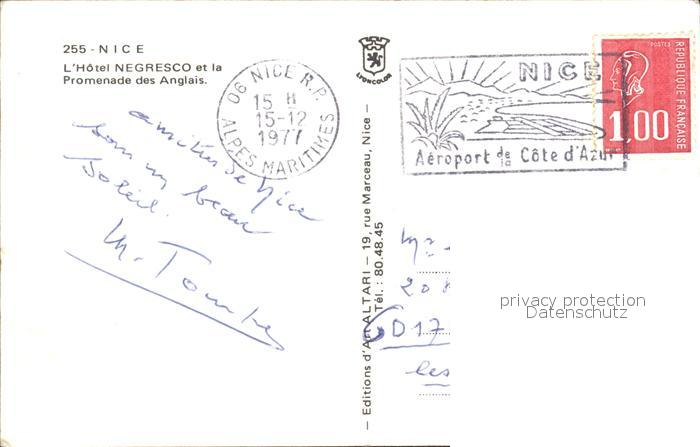 255 - NICE
L'Hôtel NEGRESCO et la
Promenade des Anglais.
LYONCOLOR
06 NICE R.P.
15 H
15-12
1977
ALPES MARITIMES
NICE
Aéroport de la Côte d'Azur
POSTES
RÉPUBLIQUE FRANÇAISE
1,00
amitiés de Nice
sous un beau
Soleil.
M.
— Editions d'Art ALTARI — 19, rue Marceau, Nice —
Tél.: 80.48.45
20
6D17
les
privacy protection
Datenschutz